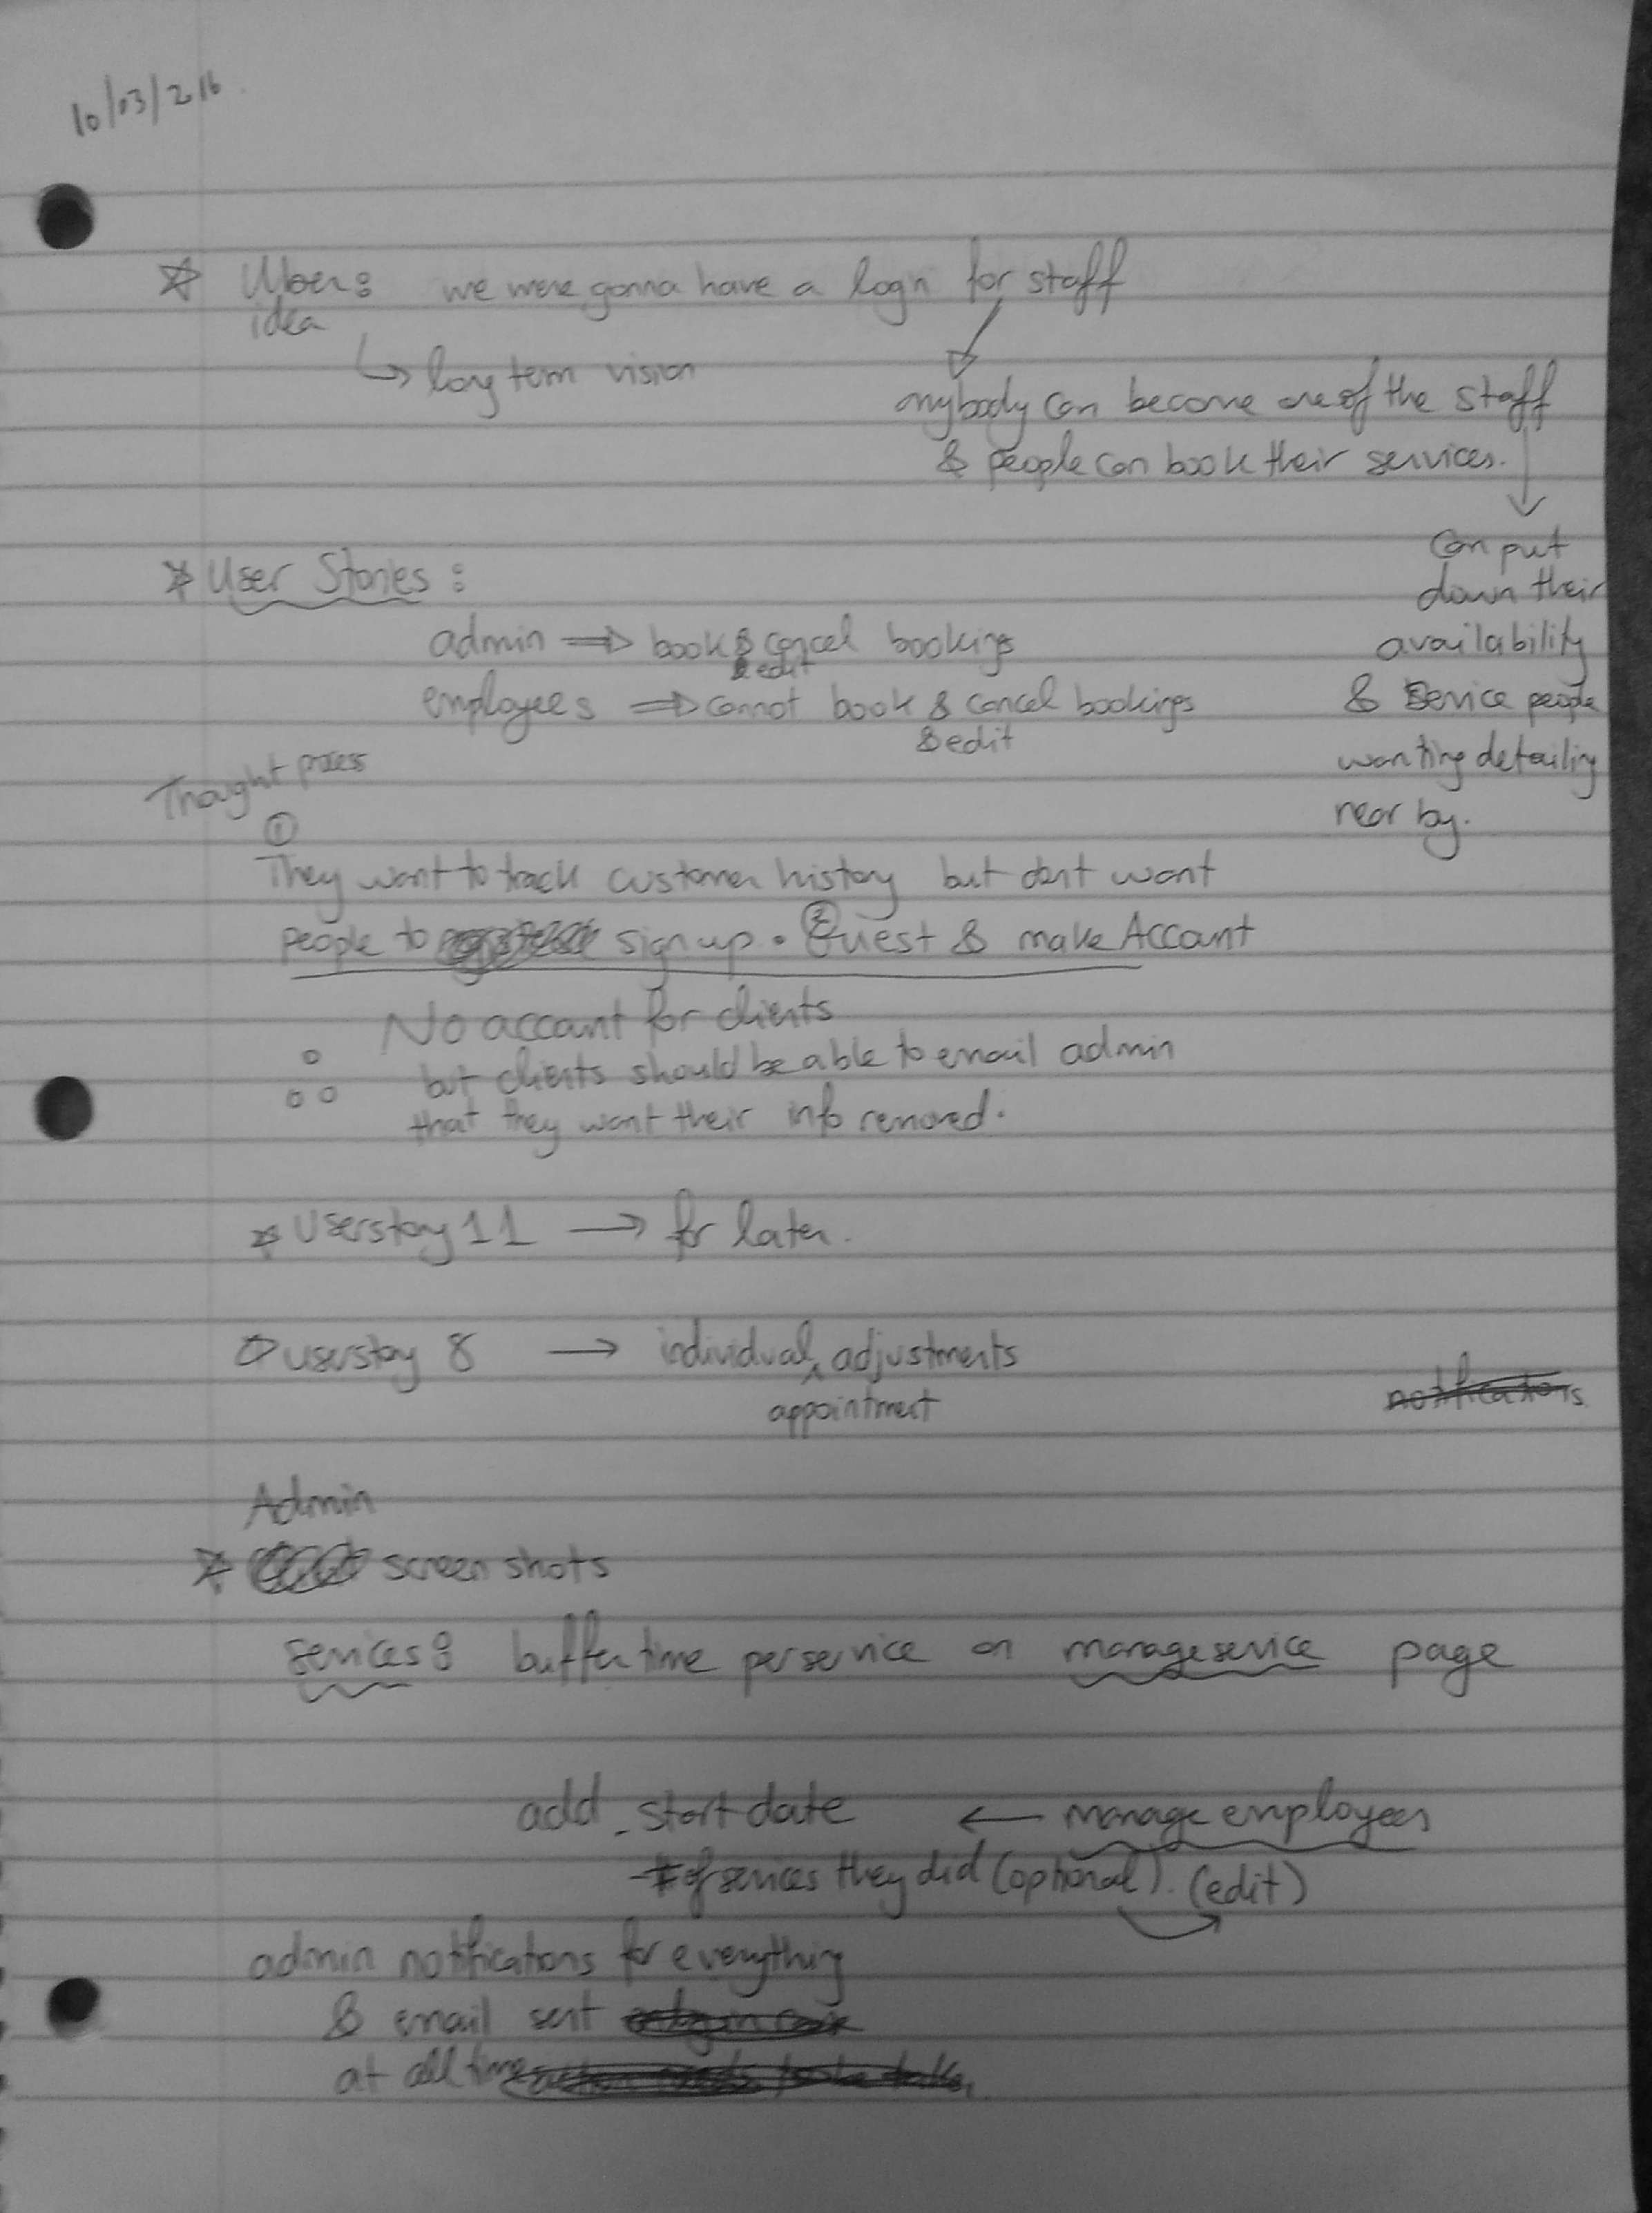 10/03/2016
☆ Uber: we were gonna have a login for staff
idea
↳ long term vision
anybody can become one of the staff
& people can book their services.
can put
down their
availability
& Service people
wanting detailing
near by.
* User Stories:
admin ⇒ book & cancel bookings
& edit
employees ⇒ cannot book & cancel bookings
& edit
Thought process
①
They want to track customer history but dont want
people to sign up. ② Guest & make Account
∴ No account for clients
but clients should be able to email admin
that they want their info removed.
* Userstory 11 → for later.
userstory 8 → individual ^ adjustments
appointment
notifications
Admin
* screen shots
services: buffer time per service on manage service page
add - start date ← manage employees
- # of services they did (optional). (edit)
admin notifications for everything
& email sent
at all time